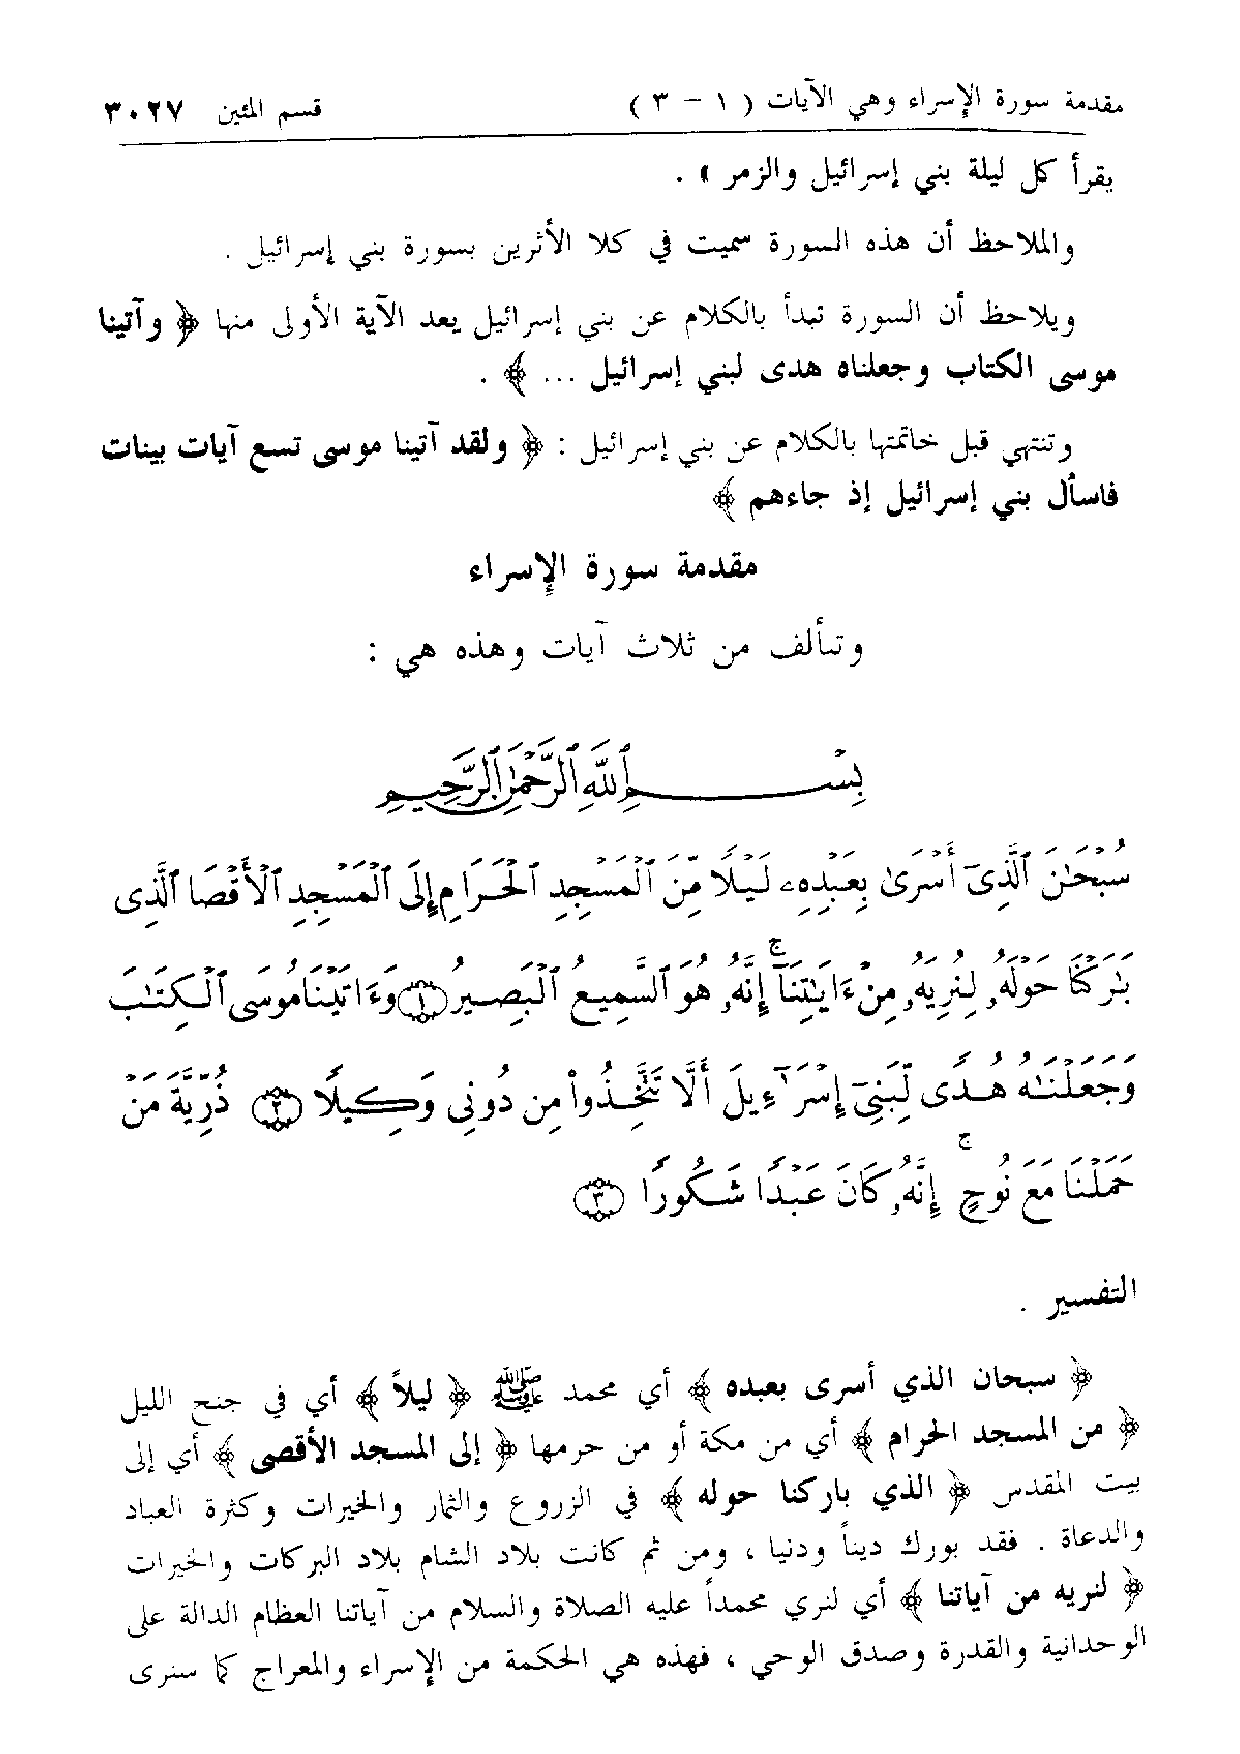 مقدمة سورة الإسراء وهي الآيات ( ١ – ٣ ) قسم المئين ٣٠٢٧
يقرأ كل ليلة بني إسرائيل والزمر » .
والملاحظ أن هذه السورة سميت في كلا الأثرين بسورة بني إسرائيل .
ويلاحظ أن السورة تبدأ بالكلام عن بني إسرائيل بعد الآية الأولى منها ﴿ وآتينا
موسى الكتاب وجعلناه هدى لبني إسرائيل ... ﴾ .
وتنتهي قبل خاتمتها بالكلام عن بني إسرائيل : ﴿ ولقد آتينا موسى تسع آيات بينات
فاسأل بني إسرائيل إذ جاءهم ﴾
مقدمة سورة الإسراء
وتتألف من ثلاث آيات وهذه هي :
بِسْمِ ٱللَّهِ ٱلرَّحْمَٰنِ ٱلرَّحِيمِ
سُبْحَٰنَ ٱلَّذِىٓ أَسْرَىٰ بِعَبْدِهِۦ لَيْلًا مِّنَ ٱلْمَسْجِدِ ٱلْحَرَامِ إِلَى ٱلْمَسْجِدِ ٱلْأَقْصَا ٱلَّذِى
بَٰرَكْنَا حَوْلَهُۥ لِنُرِيَهُۥ مِنْ ءَايَٰتِنَآ ۚ إِنَّهُۥ هُوَ ٱلسَّمِيعُ ٱلْبَصِيرُ ﴿١﴾ وَءَاتَيْنَا مُوسَى ٱلْكِتَٰبَ
وَجَعَلْنَٰهُ هُدًى لِّبَنِىٓ إِسْرَٰٓءِيلَ أَلَّا تَتَّخِذُوا۟ مِن دُونِى وَكِيلًا ﴿٢﴾ ذُرِّيَّةَ مَنْ
حَمَلْنَا مَعَ نُوحٍ ۚ إِنَّهُۥ كَانَ عَبْدًا شَكُورًا ﴿٣﴾
التفسير .
﴿ سبحان الذي أسرى بعبده ﴾ أي محمد ﷺ ﴿ ليلاً ﴾ أي في جنح الليل
﴿ من المسجد الحرام ﴾ أي من مكة أو من حرمها ﴿ إلى المسجد الأقصى ﴾ أي إلى
بيت المقدس ﴿ الذي باركنا حوله ﴾ في الزروع والثمار والخيرات وكثرة العباد
والدعاة . فقد بورك ديناً ودنيا ، ومن ثم كانت بلاد الشام بلاد البركات والخيرات
﴿ لنريه من آياتنا ﴾ أي لنري محمداً عليه الصلاة والسلام من آياتنا العظام الدالة على
الوحدانية والقدرة وصدق الوحي ، فهذه هي الحكمة من الإسراء والمعراج كما سنرى